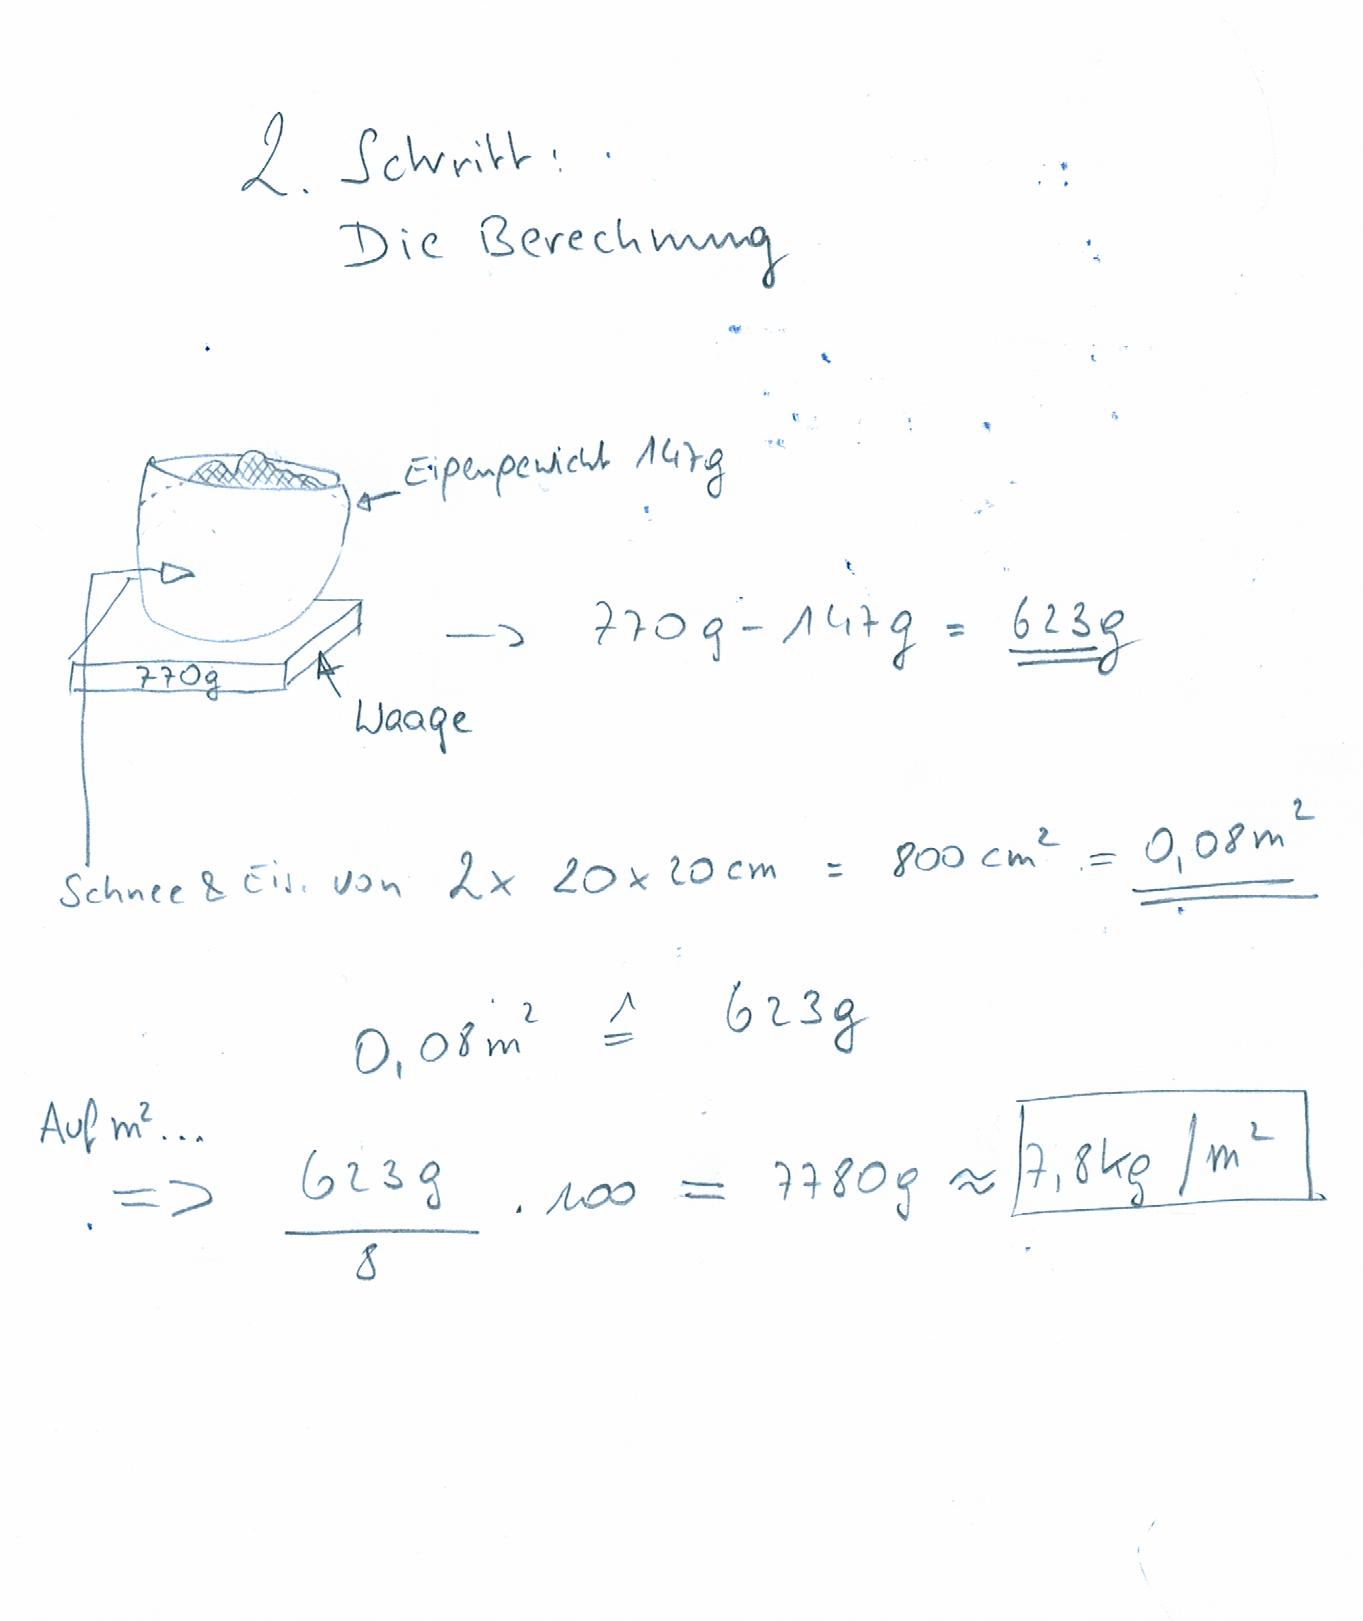 2. Schritt:
Die Berechnung
Eigengewicht 147g
770g
Waage
→ 770g - 147g = 623g
Schnee & Eis. von 2x 20x20cm = 800cm² = 0,08m²
0,08m² ≙ 623g
Auf m²...
=> 623g / 8 . 100 = 7780g ≈ 7,8kg/m²